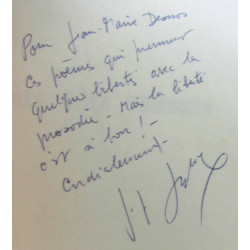 Pour Jean-Marie
Ces poèmes qui prennent
quelque liberté avec la
prosodie - Mais la liberté
c'est si bon ! -
Cordialement -